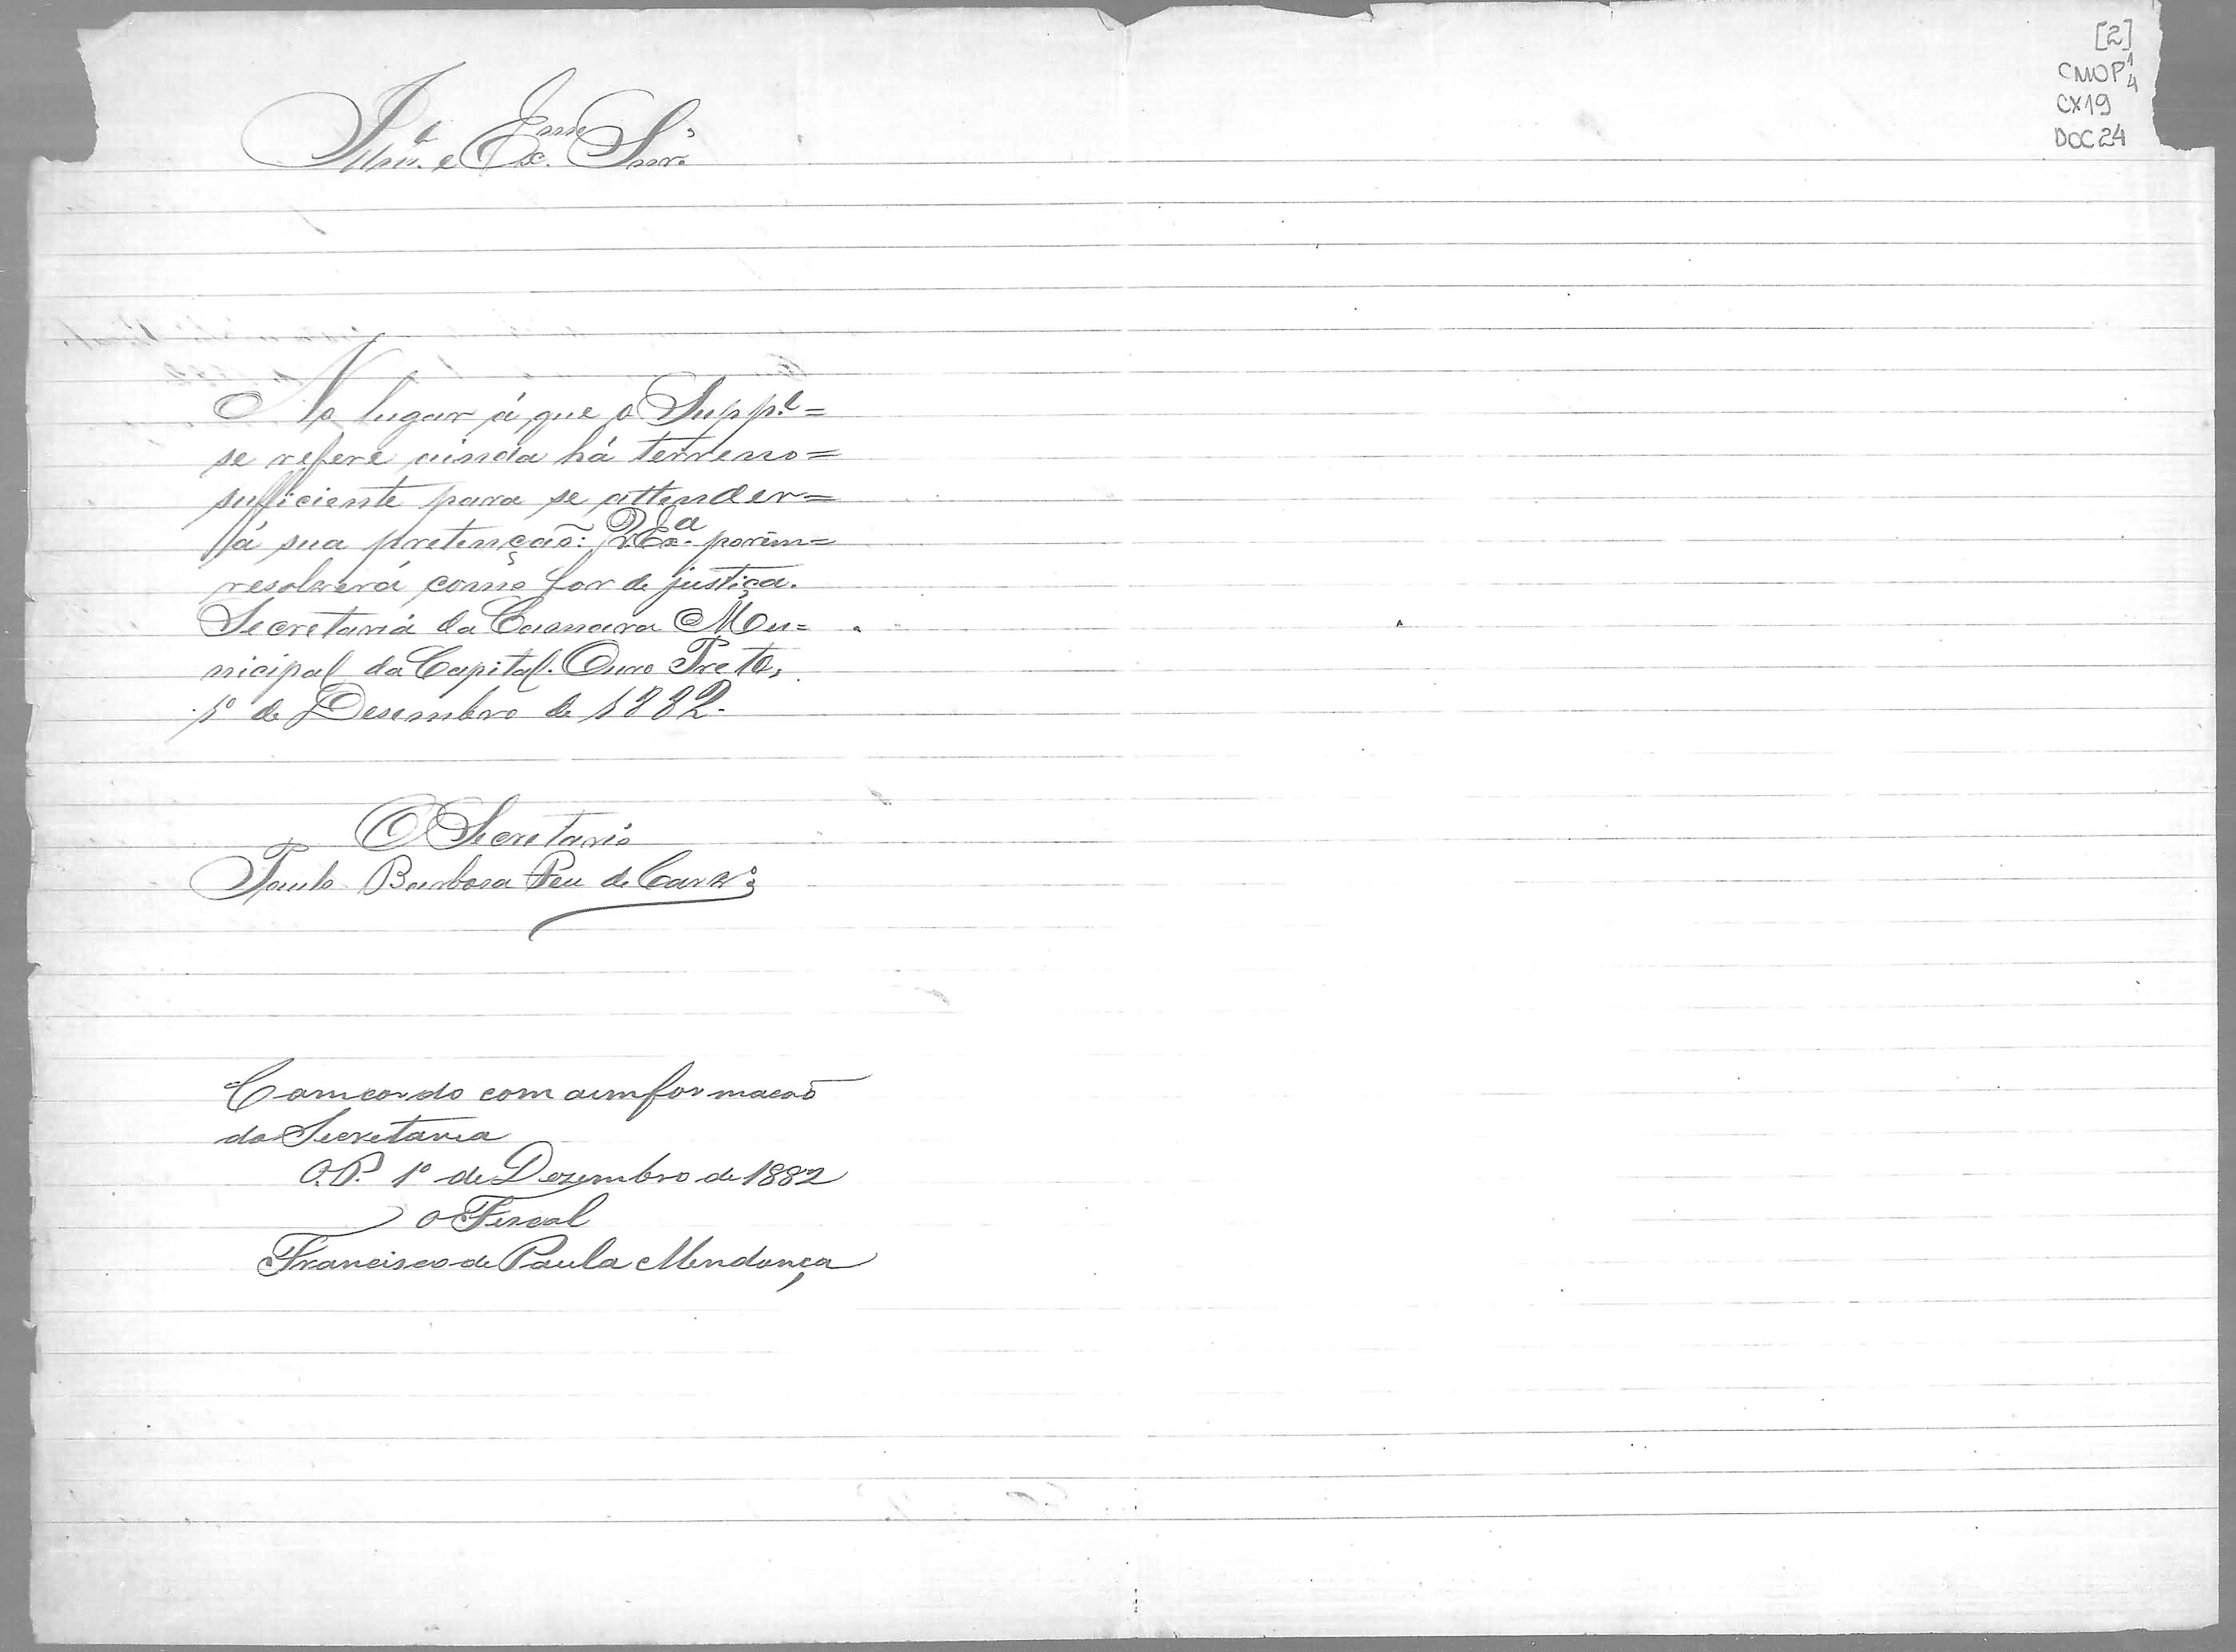 [2]
CMOP 1/4
CX19
DOC24
Illmº. e Exmº. Snrº.
No lugar á que o Suppe=
se refere ainda há terreno=
sufficiente para se attender=
á sua pretenção: V. Exa. porém=
resolverá como for de justiça.
Secretaria da Camara Mu=
nicipal da Capital. Ouro Preto,
1º de Desembro de 1882.
O Secretario
Paulo Barbosa de Carvº
Comcordo com aimformacaõ
da Secretaria
O.P. 1º de Dezembro de 1882
O Fiscal
Francisco de Paula Mendonça